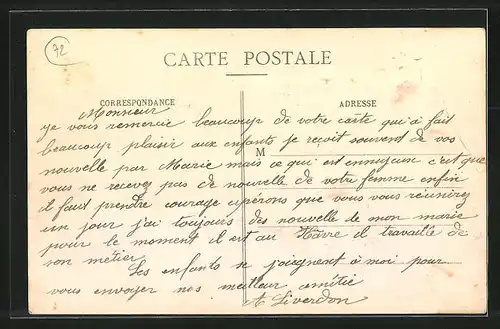 72
CARTE POSTALE
CORRESPONDANCE
ADRESSE
M
Monsieur
je vous remercie beaucoup de votre carte qui a fait
beaucoup plaisir aux enfants je reçoit souvent de vos
nouvelle par Marie mais ce qui est ennuyeux c'est que
vous ne recevez pas de nouvelle de votre femme enfin
il faut prendre courage espérons que vous vous réunirez
un jour j'ai toujours des nouvelle de mon marie
pour le moment il est au Hâvre il travaille de
son métier
Les enfants se joignent à moi pour
vous envoyer nos meilleur amitié
A Liverdon